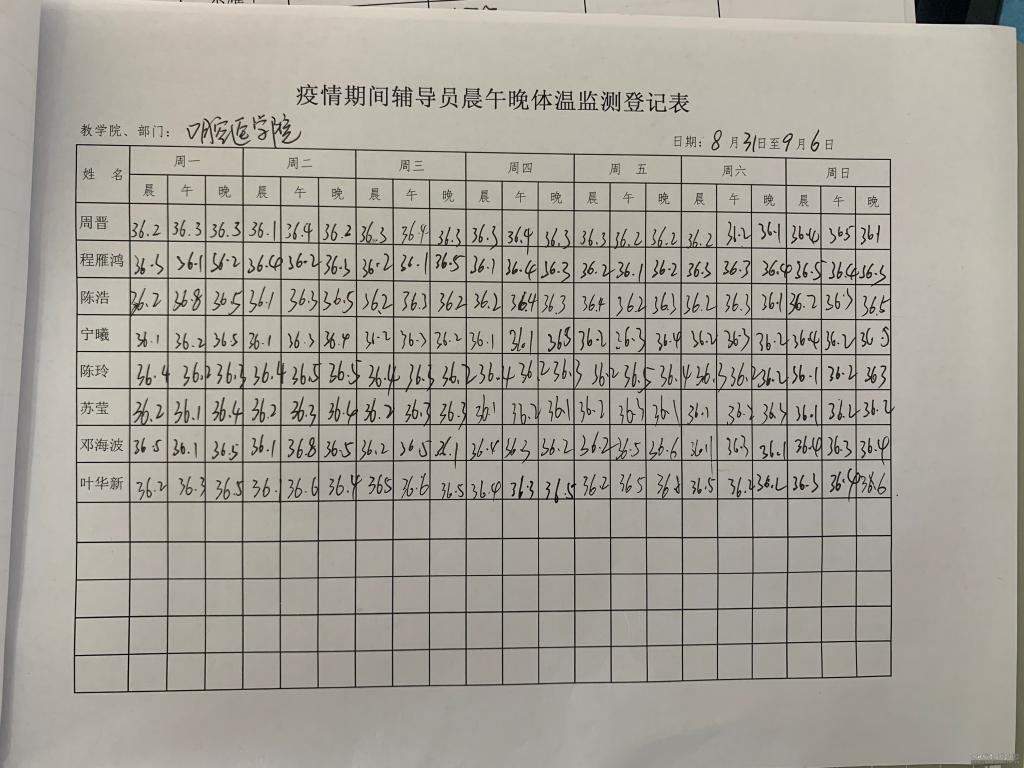 疫情期间辅导员晨午晚体温监测登记表
教学院、部门: 口腔医学院 日期: 8月31日至9月6日
姓 名 周一 周二 周三 周四 周 五 周六 周日
晨 午 晚 晨 午 晚 晨 午 晚 晨 午 晚 晨 午 晚 晨 午 晚 晨 午 晚
周晋 36.2 36.3 36.3 36.1 36.4 36.2 36.3 36.4 36.3 36.3 36.4 36.3 36.3 36.2 36.2 36.2 36.2 36.1 36.4 365 361
程雁鸿 36.3 36.1 36.2 36.4 36.2 36.3 36.2 36.1 36.5 36.1 36.4 36.3 36.2 36.1 36.2 36.3 36.3 36.4 36.5 36.4 36.3
陈浩 36.2 36.8 36.5 36.1 36.3 36.5 36.2 36.3 36.2 36.2 36.4 36.3 36.4 36.2 36.3 36.2 36.3 36.1 36.2 36.3 36.5
宁曦 36.1 36.2 36.5 36.1 36.3 36.4 36.2 36.3 36.2 36.1 36.1 363 36.2 36.3 36.4 36.2 36.3 36.2 36.4 36.2 36.5
陈玲 36.4 36.2 36.3 36.4 36.5 36.5 36.4 36.3 36.2 36.4 36.2 36.3 36.2 36.5 36.4 36.3 36.2 36.2 36.1 36.2 363
苏莹 36.2 36.1 36.4 36.2 36.3 36.4 36.2 36.3 36.3 36.1 36.2 36.1 36.2 36.3 36.1 36.1 36.2 36.3 36.1 36.2 36.2
邓海波 36.5 36.1 36.5 36.1 36.8 36.5 36.2 36.5 36.1 36.4 36.3 36.2 36.2 36.5 36.6 36.1 36.3 36.1 36.4 36.3 36.4
叶华新 36.2 36.3 36.5 36.1 36.6 36.4 365 36.6 36.5 36.4 36.3 36.5 36.2 36.5 36.8 36.5 36.2 36.2 36.3 36.4 36.6